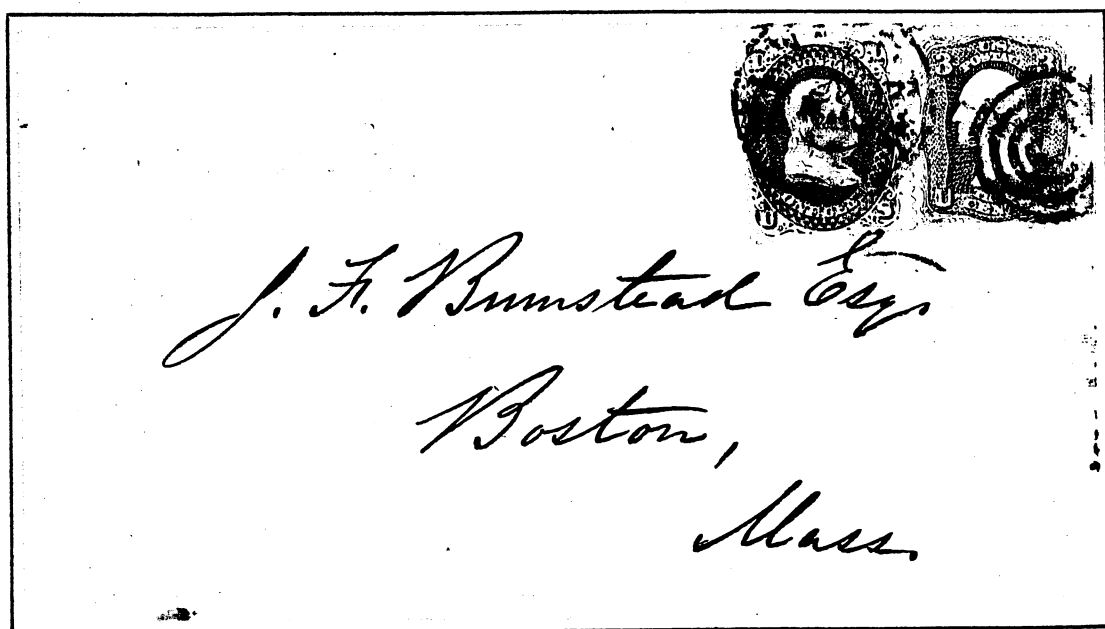 J. F. Bumstead Esq.
Boston,
Mass.